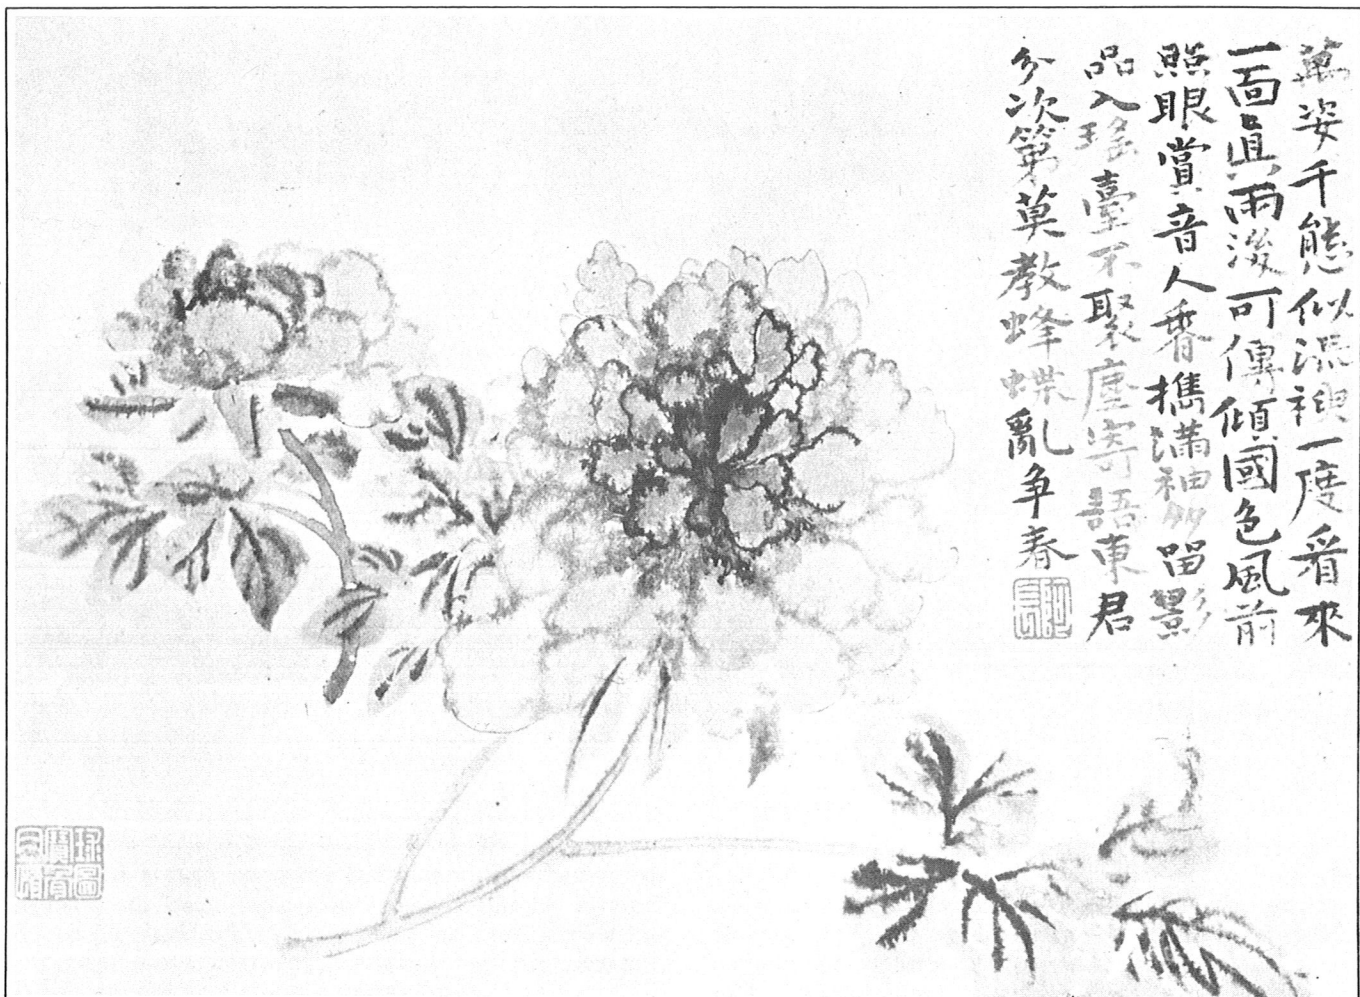 萬姿千態似流神一度看來
一面眞雨後可傳傾國色風前
照眼賞音人香擕滿袖多留影
品入瑤臺不聚塵寄語東君
分次第莫教蜂蝶亂争春